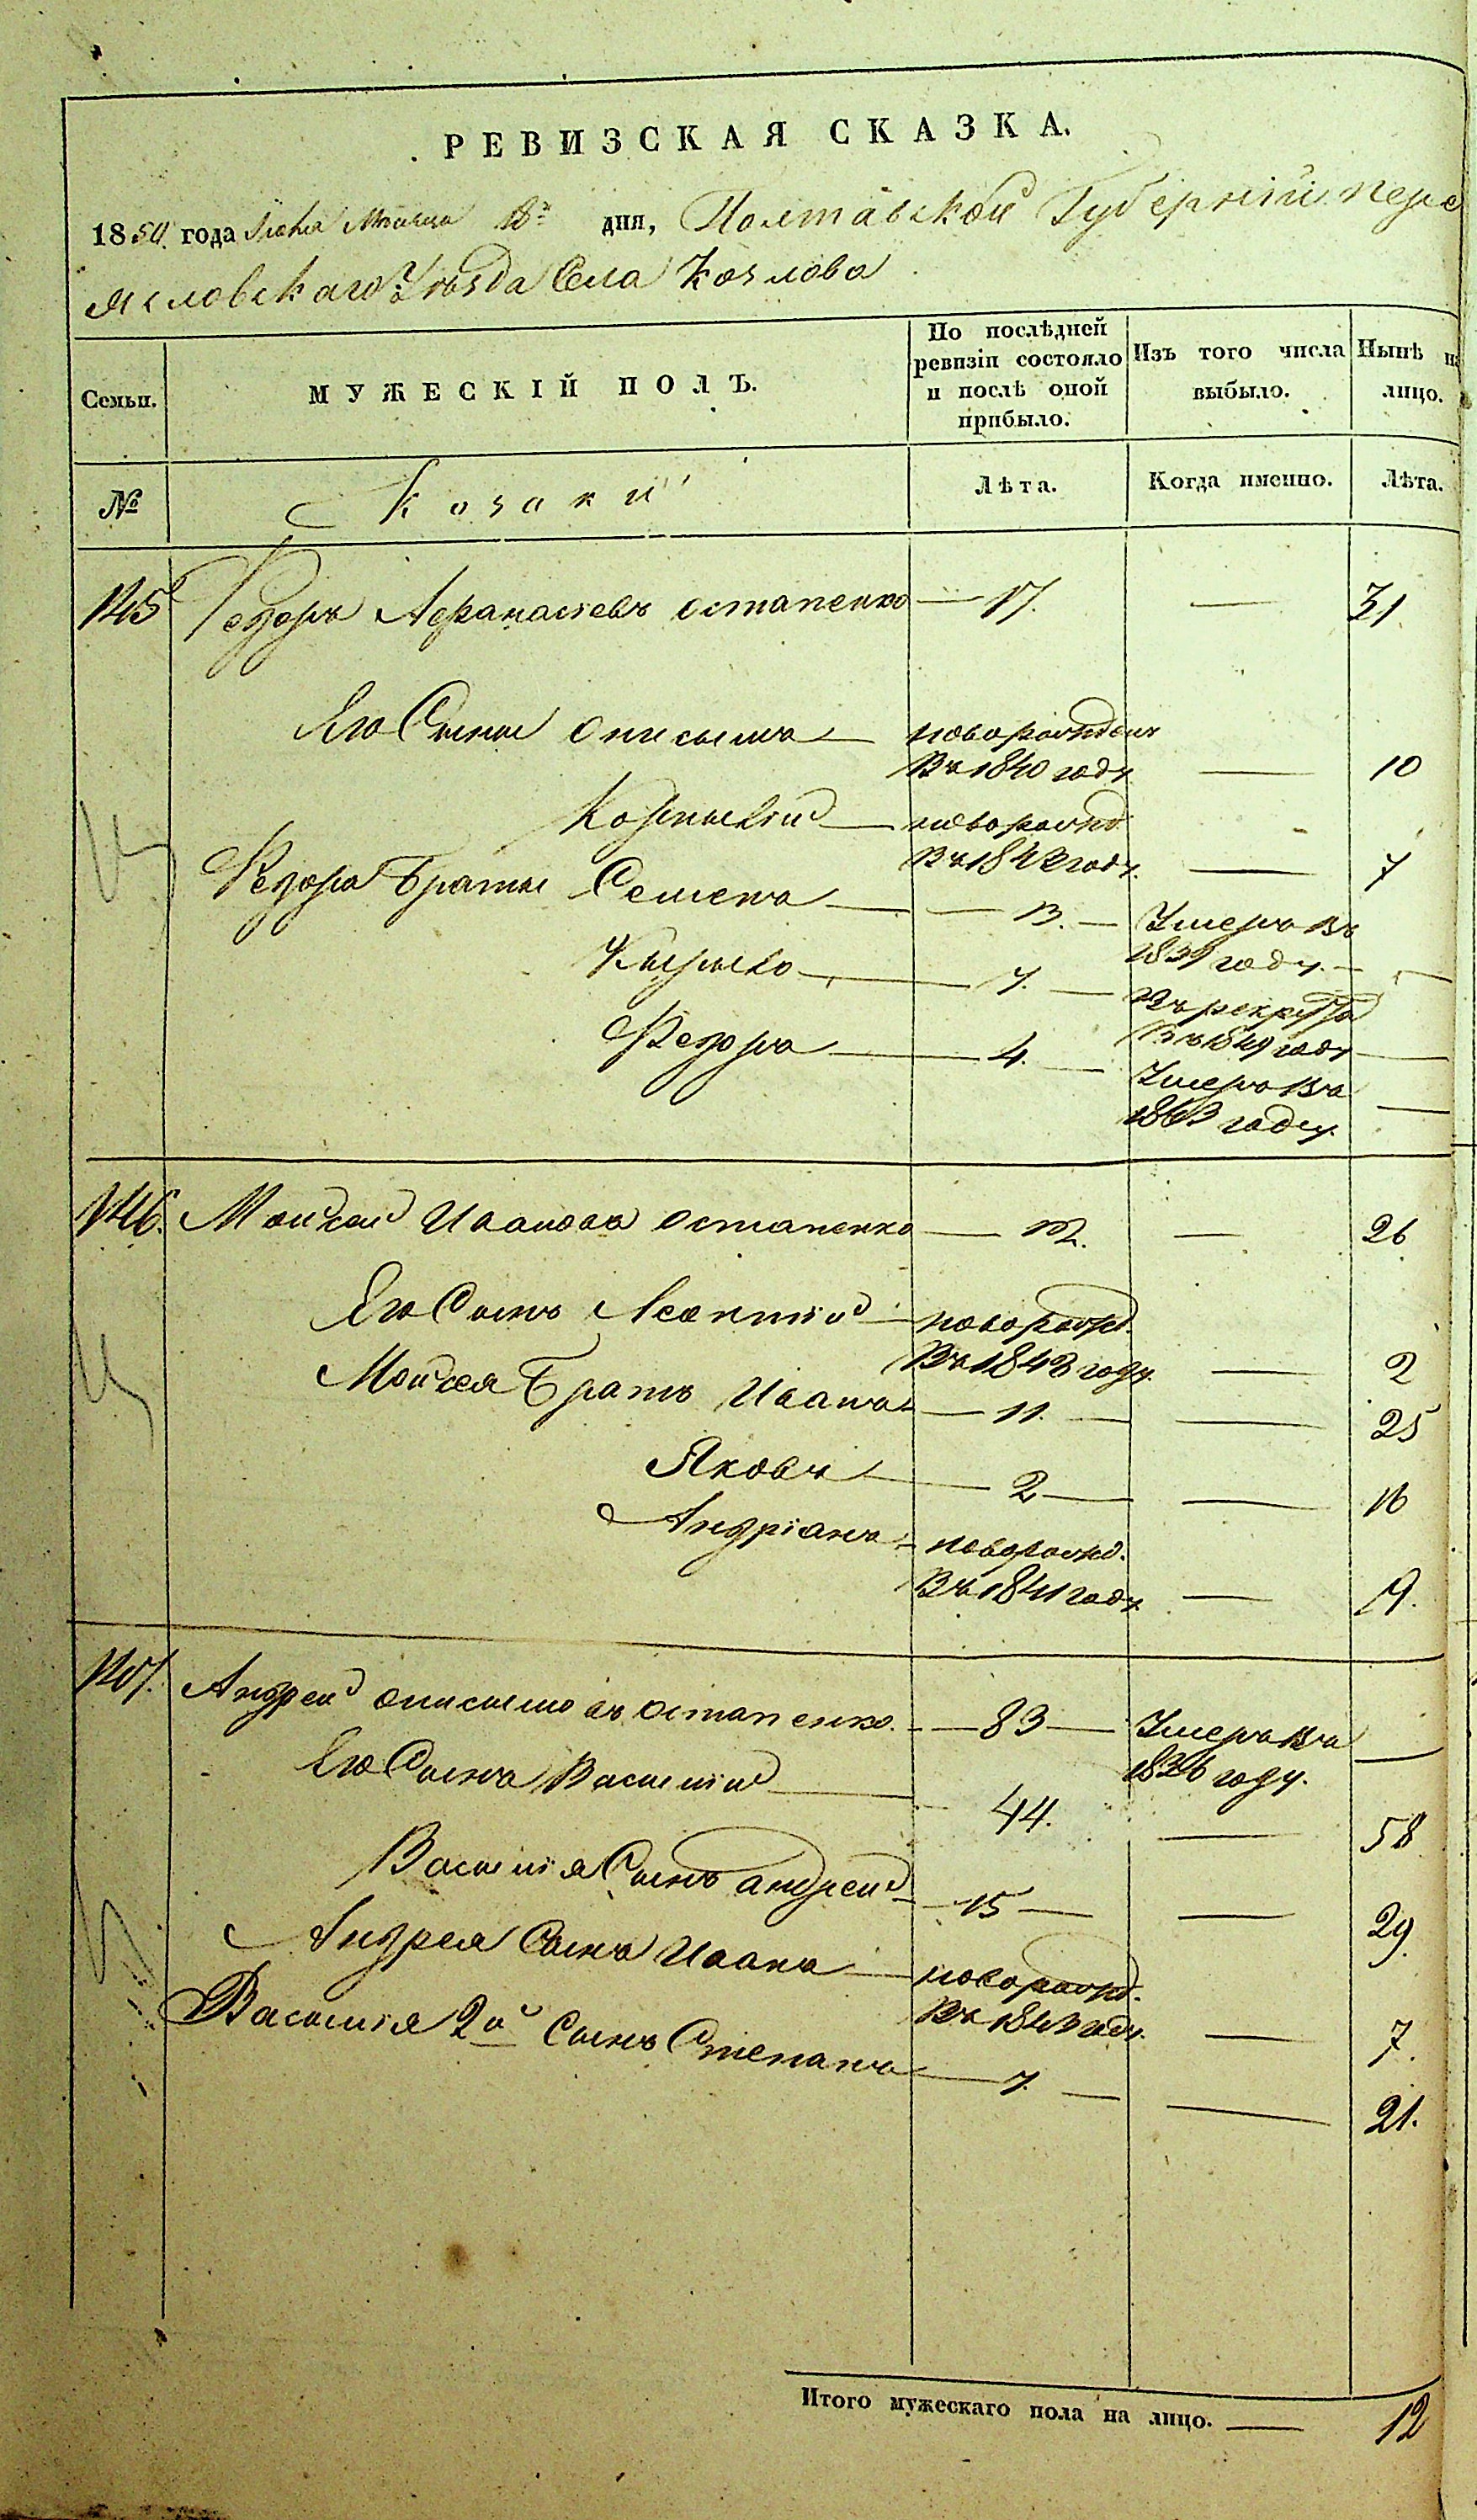 РЕВИЗСКАЯ СКАЗКА.
1850 года Іюня Месяца дня, Полтавской Губерніи, Пере
яславскаго Уѣзда Села Козлова
Семьи. МУЖЕСКІЙ ПОЛЪ. По послѣдней ревизіи состояло и послѣ оной прибыло. Изъ того числа выбыло. Нынѣ на лицо.
№ Козаки Лѣта. Когда именно. Лѣта.
145 Федоръ Афанасіевъ Остапенко — 17. — 31
Его Сыны Онисимъ — новорожден
въ 1840 году — 10
Корнилій — новорожд.
въ 1843 году. — 7
Федора Братья Семенъ — 13. — Умеръ въ
1839 году. —
Кирило — 7. — Въ рекруты
въ 1849 году —
Федоръ — 4. — Умеръ въ
1843 году. —
146. Моисей Ивановъ Остапенко — 12. — 26
Его Сынъ Леонтій — новорожд.
въ 1848 году. — 2
Моисея Братъ Иванъ — 11. — — 25
Яковъ — 2 — — 16
Андріанъ — новорожд.
въ 1841 году — 9.
147. Андрей Онисимовъ Остапенко — 83 — Умеръ въ
1836 году. —
Его Сынъ Василій — 44. — 58
Василія Сынъ андрей — 15 — — 29.
Андрея Сынъ Иванъ — новорожд.
въ 1843 году. — 7.
Василія 2й Сынъ Степанъ — 7. — — 21.
Итого мужескаго пола на лицо. — 12